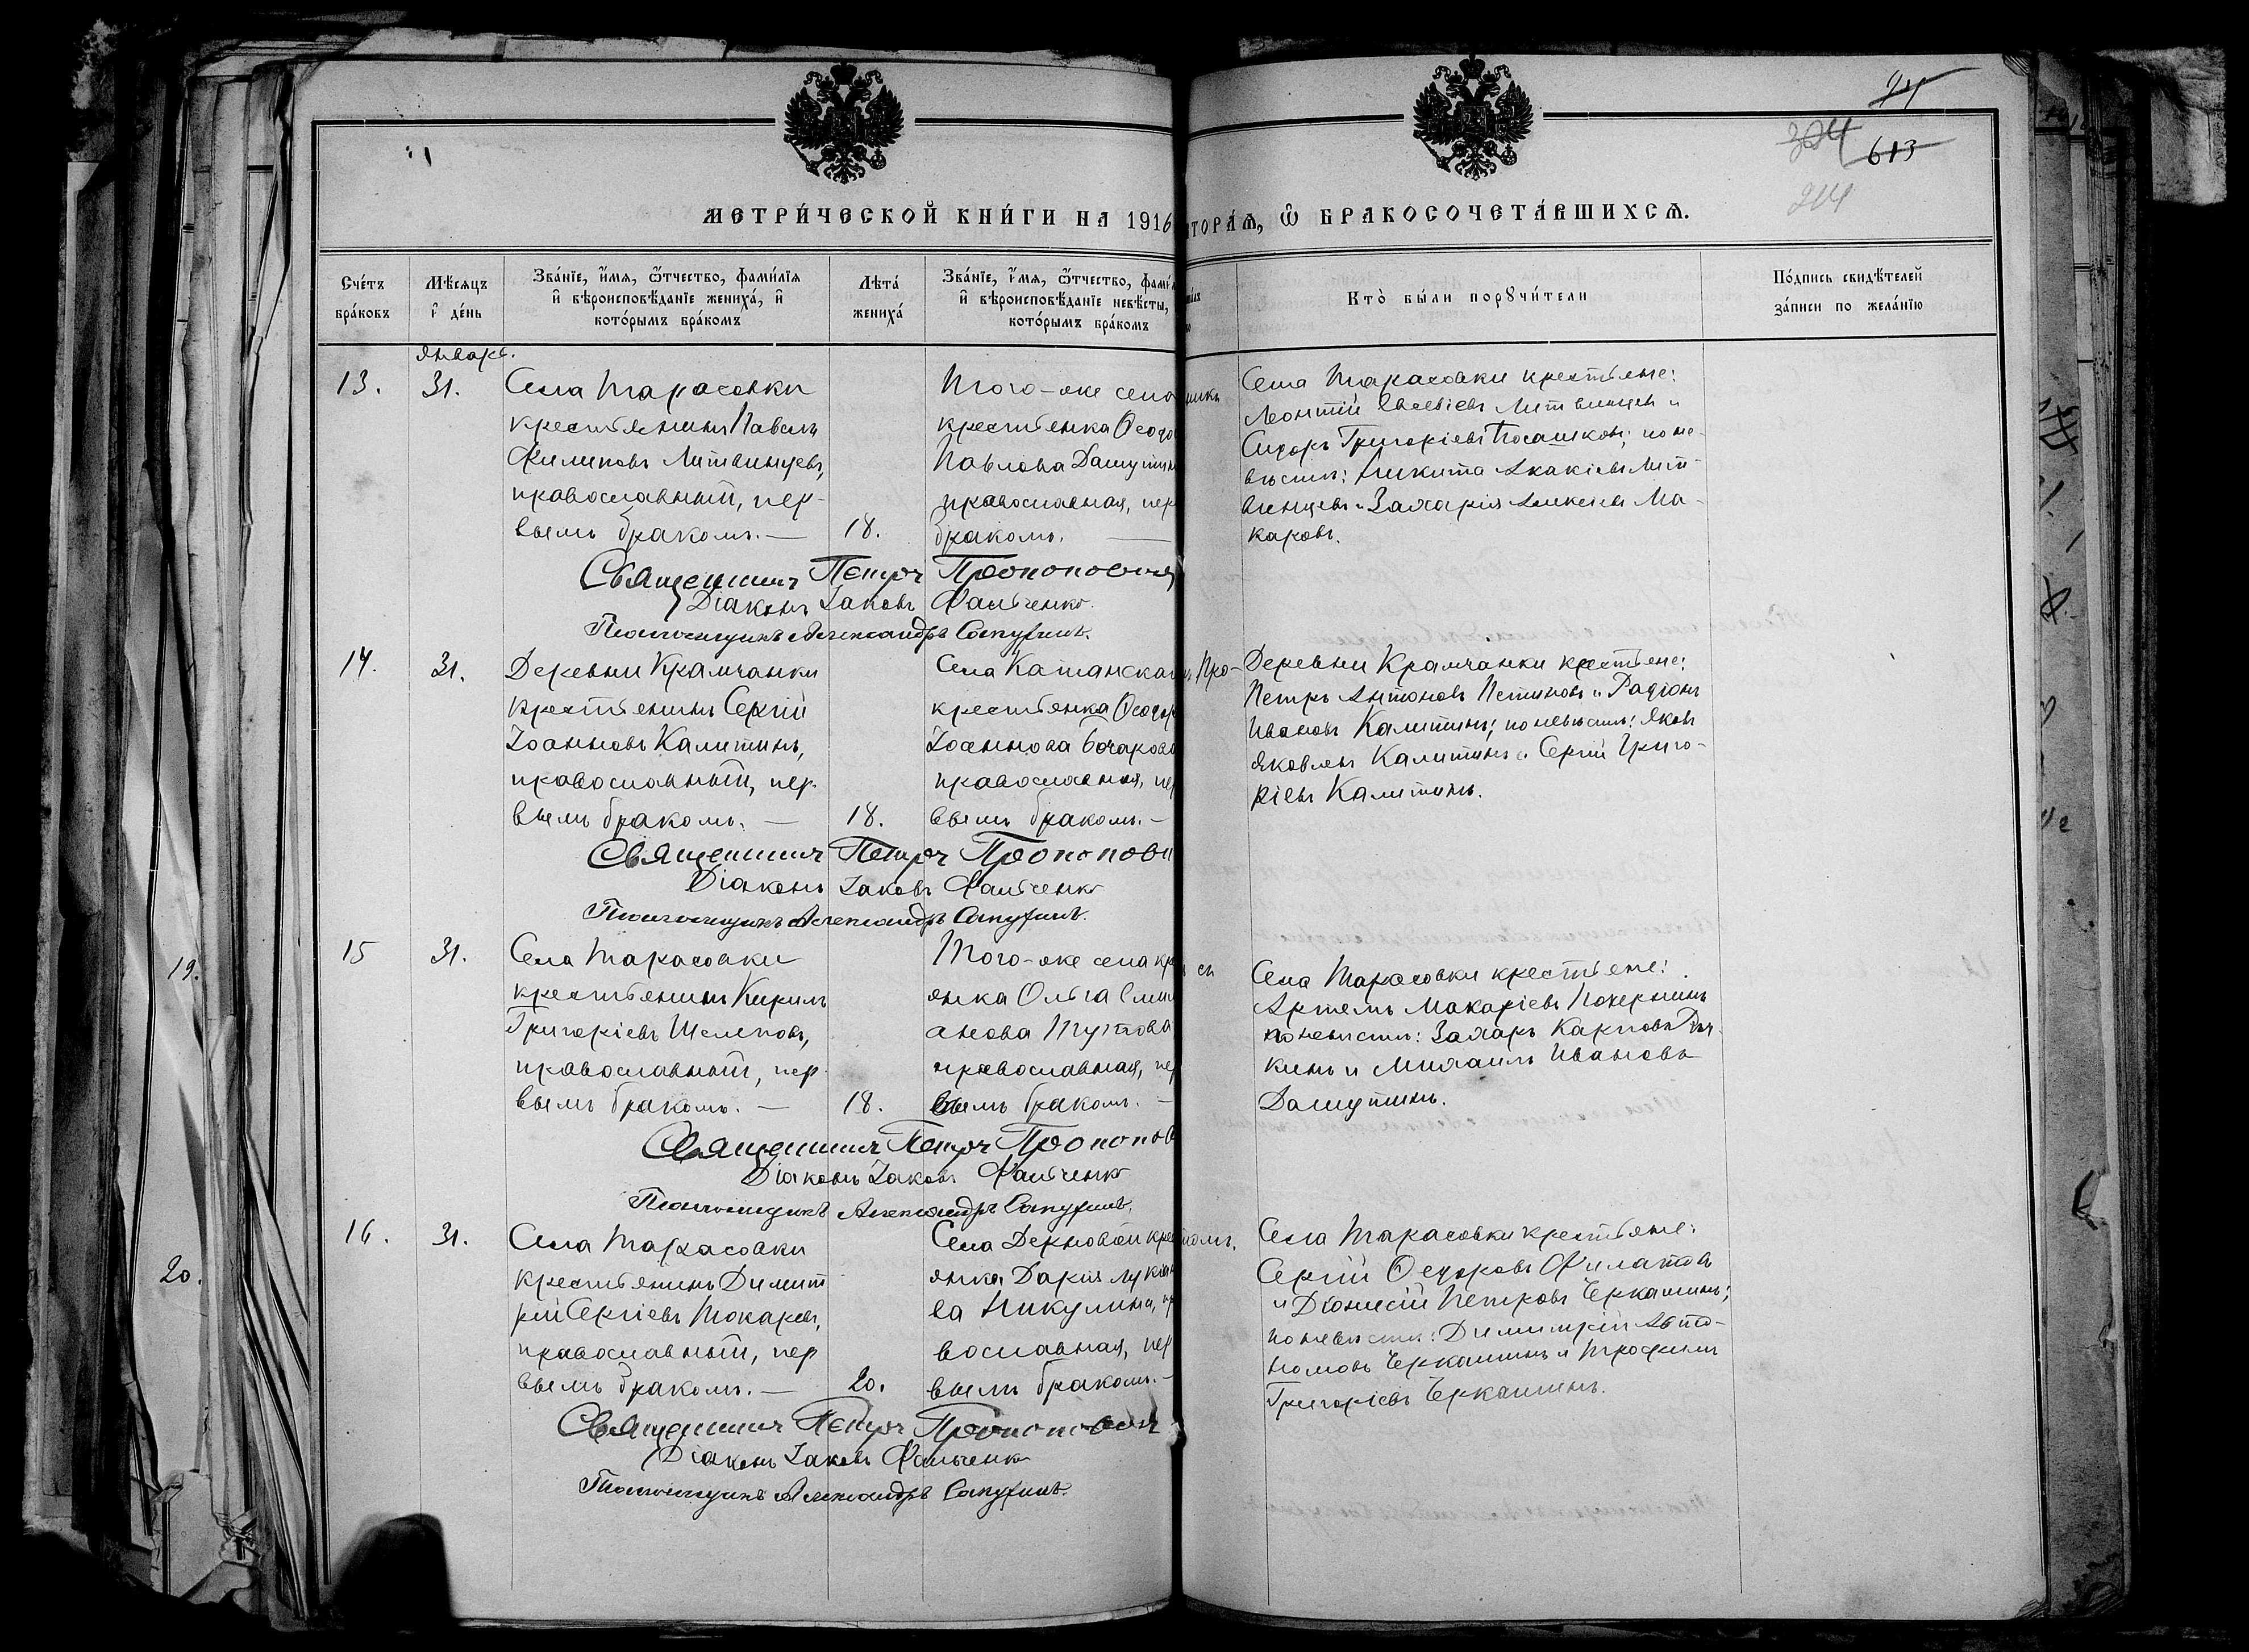 24
304
613
214
МЕТРИ́ЧЕСКОЙ КНИ́ГИ НА 1916
ТОРА́Ѧ, Ѿ БРАКОСОЧЕТА́ВШИХСѦ.
Сче́тъ бра́ковъ
Мѣ́сяцъ и҆ де́нь
Зва́нїе, и҆́мя, ѻ҆́тчество, фами́лїя и҆ вѣроисповѣ́данїе жениха́, и҆ кото́рымъ бра́комъ
Лѣта́ жениха́
Зва́нїе, и҆́мя, ѻ҆́тчество, фами́ и҆ вѣроисповѣ́данїе невѣ́сты, кото́рымъ бра́комъ
Кто̀ бы́ли порꙋчи́тели
По́дпись свидѣ́телей за́писи по жела́нїю
Январь.
13.
31.
Села Тарасовки
крестьянинъ Павелъ
Филиповъ Литвинцевъ,
православный, пер-
вымъ бракомъ. —
18.
Того-же села
крестьянка Ѳеодо
Павлова Дашутин
православная, пер
бракомъ. —
Села Тарасовки крестьяне:
Леонтій Литвинцев и
Сидоръ Григоріевъ Посашковъ; по не-
вѣстѣ: Никита Акакіевъ Лит-
винцевъ и Захарія Алексѣевъ Ма-
каровъ.
Священникъ Петръ Прокопович
Діаконъ Іаковъ Фальченко.
Псаломщикъ Александръ
14.
31.
Деревни Крамчанки
крестьянинъ Сергій
Іоанновъ Калитинъ,
православный, пер-
вымъ бракомъ. —
18.
Села
крестьянка Ѳеодор
Іоаннова Бочарова
православная, пер
вымъ бракомъ. —
Про-
Деревни Крамчанки крестьяне:
Петръ Антоновъ и Радіонъ
Ивановъ Калитинъ; по невѣстѣ: Яковъ
Яковлевъ Калитинъ и Сергій Григо-
ріевъ Калитинъ.
Священникъ Петръ Прокопови
Діаконъ Іаковъ Фальченко
Псаломщикъ Александръ
15
31.
Села Тарасовки
крестьянинъ Кирилъ
Григоріевъ Шелповъ,
православный, пер-
вымъ бракомъ. —
18.
Того-же села кр
янка Ольга Емил
анова Тутова
православная, пер
вымъ бракомъ. —
Села Тарасовки крестьяне:
Артемъ Макаріевъ
по невѣстѣ: Захаръ Карповъ
кинъ и Михаилъ Ивановъ
Дашутинъ.
Священникъ Петръ Прокопов
Діаконъ Іаковъ Фальченко
Псаломщикъ Александръ
16.
31.
Села Тарасовки
крестьянинъ Димит
рій Сергіевъ Токаревъ,
православный, пер
вымъ бракомъ. —
20.
Села Дерновой кре
янка Дарія Лукьян
ва Никулина, пр
вославная, пер
вымъ бракомъ. —
Села Тарасовки крестьяне:
Сергій Ѳедоровъ Филатовъ
и Діонисій Петровъ Черкашинъ;
по невѣстѣ: Димитрій Авто-
номовъ Черкашинъ и Трофимъ
Григоріевъ Черкашинъ.
Священникъ Петръ Прокопович
Діаконъ Іаковъ Фальченко
Псаломщикъ Александръ
19.
20.